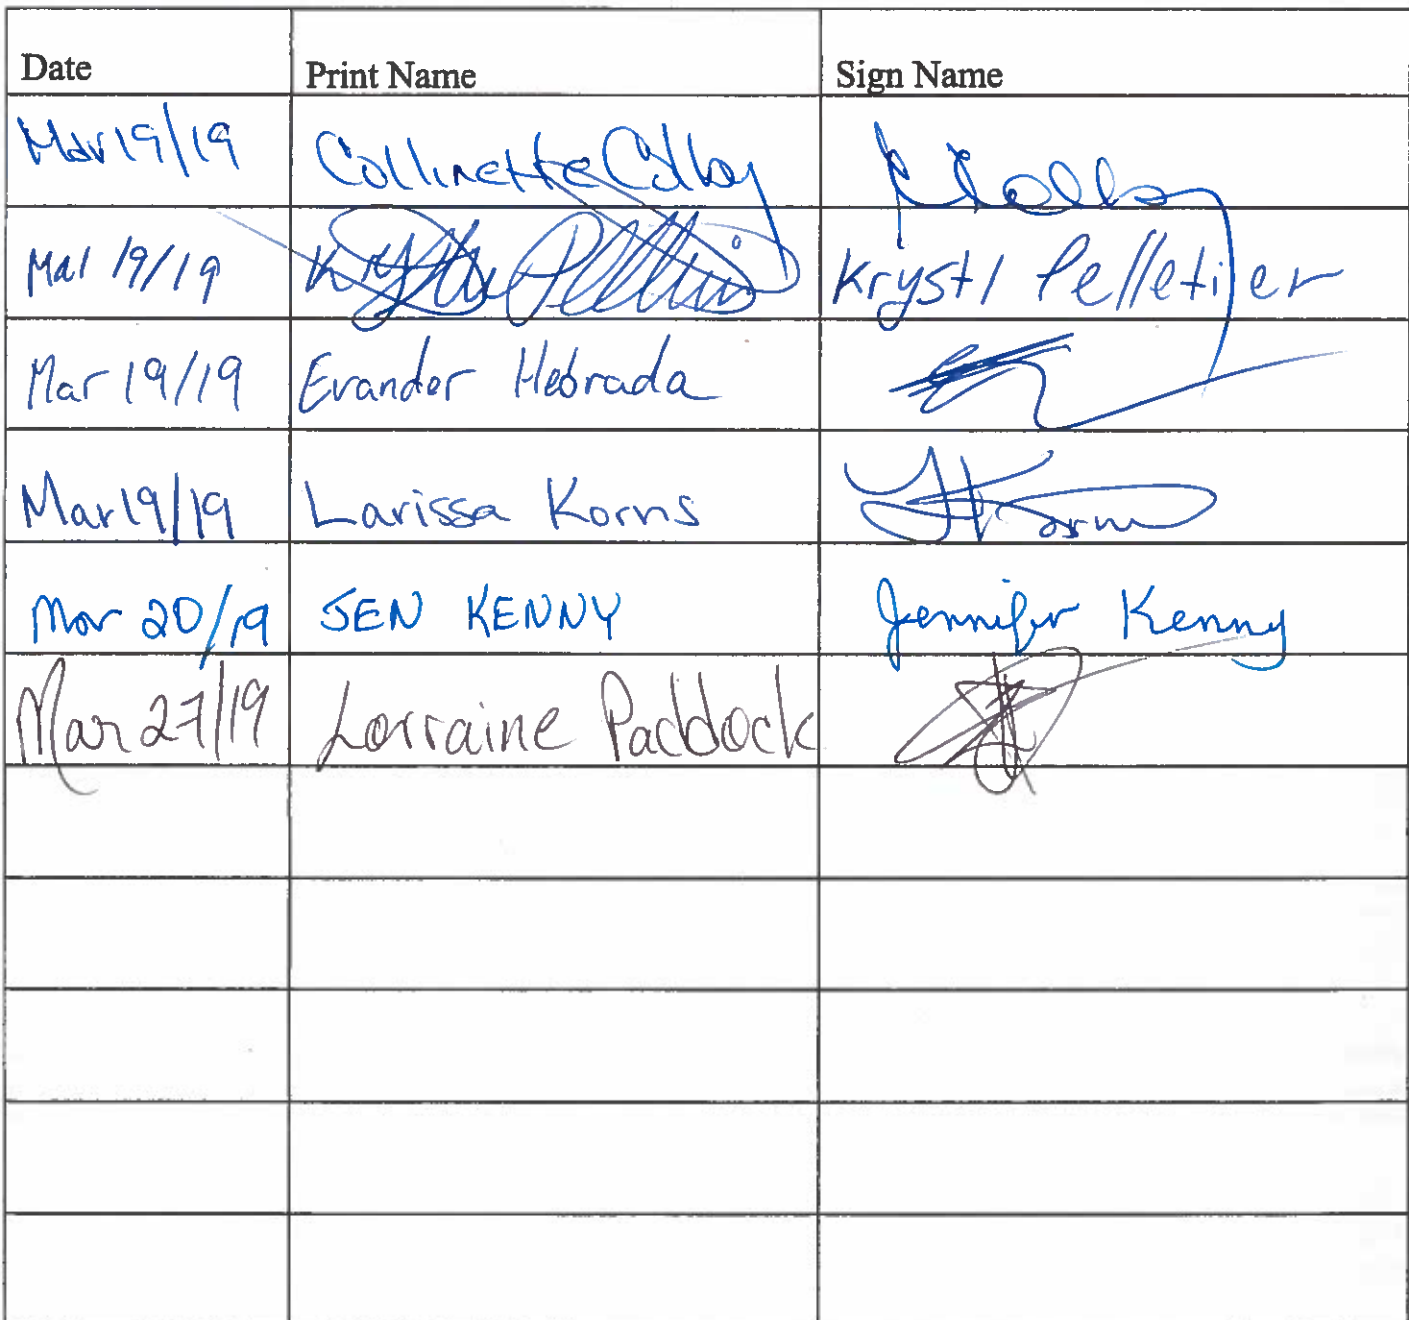 Date Print Name Sign Name
Mar 19/19 Collinette Colby
Mar 19/19 Krystl Pelletier
Mar 19/19 Evander Hebrada
Mar 19/19 Larissa Korns
Mar 20/19 JEN KENNY Jennifer Kenny
Mar 27/19 Lorraine Paddock